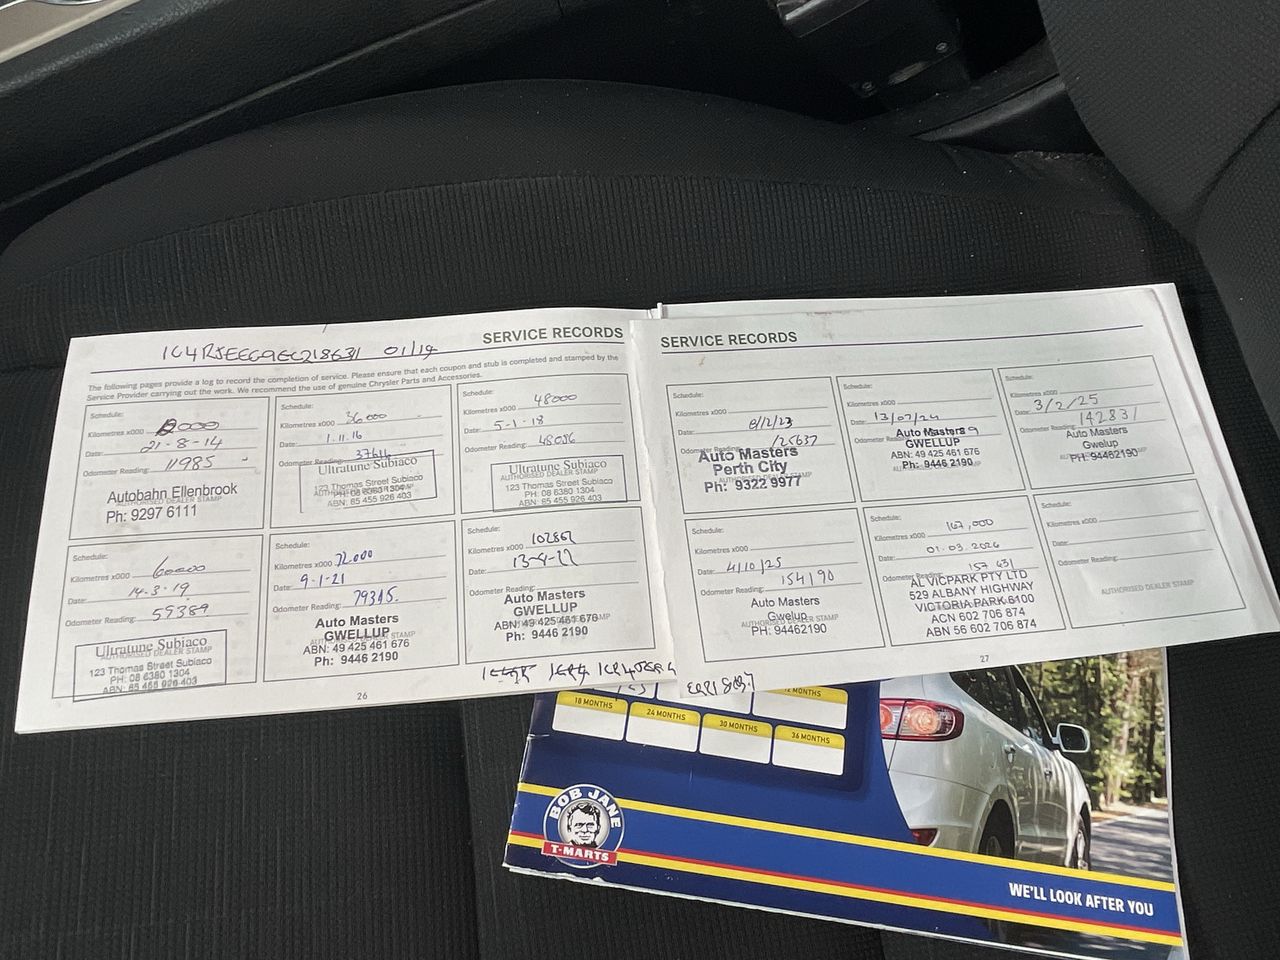 SERVICE RECORDS
01/14
The following pages provide a log to record the completion of service. Please ensure that each coupon and stub is completed and stamped by the
Service Provider carrying out the work. We recommend the use of genuine Chrysler Parts and Accessories.
Schedule:
Kilometres x000 000
Date: 21-8-14
Odometer Reading: 11985
Autobahn Ellenbrook
AUTHORISED DEALER STAMP
Ph: 9297 6111
Schedule:
Kilometres x000 36000
Date: 1.11.16
Odometer Reading:
Ultratune Subiaco
123 Thomas Street Subiaco
PH: 08 6380 1304
ABN: 65 455 926 403
Schedule:
Kilometres x000 48000
Date: 5-1-18
Odometer Reading: 48086
Ultratune Subiaco
AUTHORISED DEALER STAMP
123 Thomas Street Subiaco
PH: 08 6380 1304
ABN: 65 455 926 403
Schedule:
Kilometres x000 60000
Date: 14-3-19
Odometer Reading: 59389
Ultratune Subiaco
AUTHORISED DEALER STAMP
123 Thomas Street Subiaco
PH: 08 6380 1304
ABN: 65 455 926 403
Schedule:
Kilometres x000 72000
Date: 9-1-21
Odometer Reading: 79345
Auto Masters
GWELLUP
ABN: 49 425 461 676
Ph: 9446 2190
Schedule:
Kilometres x000 102862
Date: 13-4-22
Odometer Reading:
Auto Masters
GWELLUP
ABN: 49 425 461 676
Ph: 9446 2190
26
SERVICE RECORDS
Schedule:
Kilometres x000
Date: 8/2/23
Odometer Reading: 125637
Auto Masters
Perth City
Ph: 9322 9977
Schedule:
Kilometres x000
Date: 13/07/24
Odometer Reading:
Auto Masters
GWELLUP
ABN: 49 425 461 676
Ph: 9446 2190
Schedule:
Kilometres x000
Date: 3/2/25
Odometer Reading: 142831
Auto Masters
Gwelup
PH: 94462190
Schedule:
Kilometres x000
Date: 4/10/25
Odometer Reading: 154190
Auto Masters
AUTHORISED DEALER STAMP
Gwelup
PH: 94462190
Schedule:
Kilometres x000 167,000
Date: 01.03.2026
Odometer Reading: 157 631
AL VICPARK PTY LTD
529 ALBANY HIGHWAY
VICTORIA PARK 6100
ACN 602 706 874
ABN 56 602 706 874
Schedule:
Kilometres x000
Date:
Odometer Reading:
AUTHORISED DEALER STAMP
27
12 MONTHS
18 MONTHS
24 MONTHS
30 MONTHS
36 MONTHS
BOB JANE
T-MARTS
WE'LL LOOK AFTER YOU